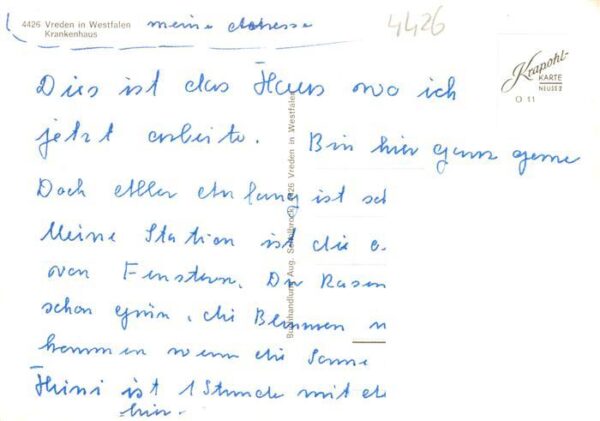 4426 Vreden in Westfalen
Krankenhaus
meine Adresse
4426
Krapohl-
KARTE
NEUSS 2
O 11
Dies ist das Haus wo ich
jetzt arbeite. Bin hier ganz gerne
Doch Aller Anfang ist sch
Meine Station ist die
von Fenstern. Der Rasen
schon grün, die Blumen
kommen wenn die Sonne
ist 1 Stunde mit
hin.
Buchhandlung Aug. 4426 Vreden in Westfalen